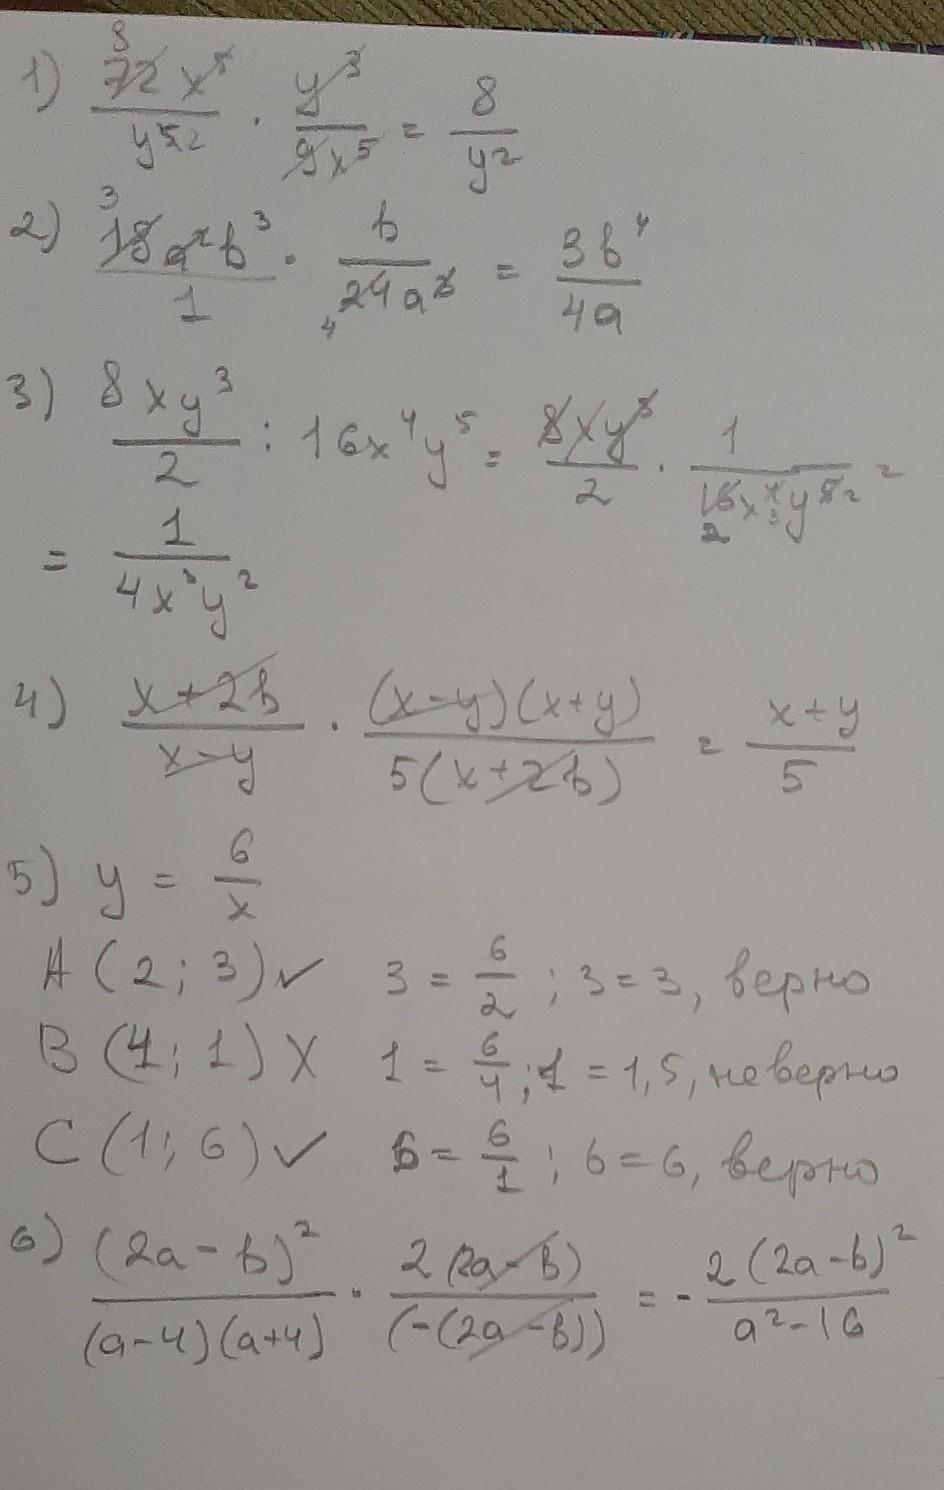 1) 72x⁵/y⁵ · y³/9x⁵ = 8/y²
2) 18a²b³/1 · b/24a³ = 3b⁴/4a
3) 8xy³/2 : 16x⁴y⁵ = 8xy³/2 · 1/16x⁴y⁵ =
= 1/4x³y²
4) x+2b/x-y · (x-y)(x+y)/5(x+2b) = x+y/5
5) y = 6/x
A (2; 3) ✓ 3 = 6/2 ; 3=3, верно
B (4; 1) X 1 = 6/4 ; 1 = 1,5, неверно
C (1; 6) ✓ 6 = 6/1 ; 6=6, верно
6) (2a-b)²/(a-4)(a+4) · 2(2a-b)/(-(2a-b)) = - 2(2a-b)²/a²-16